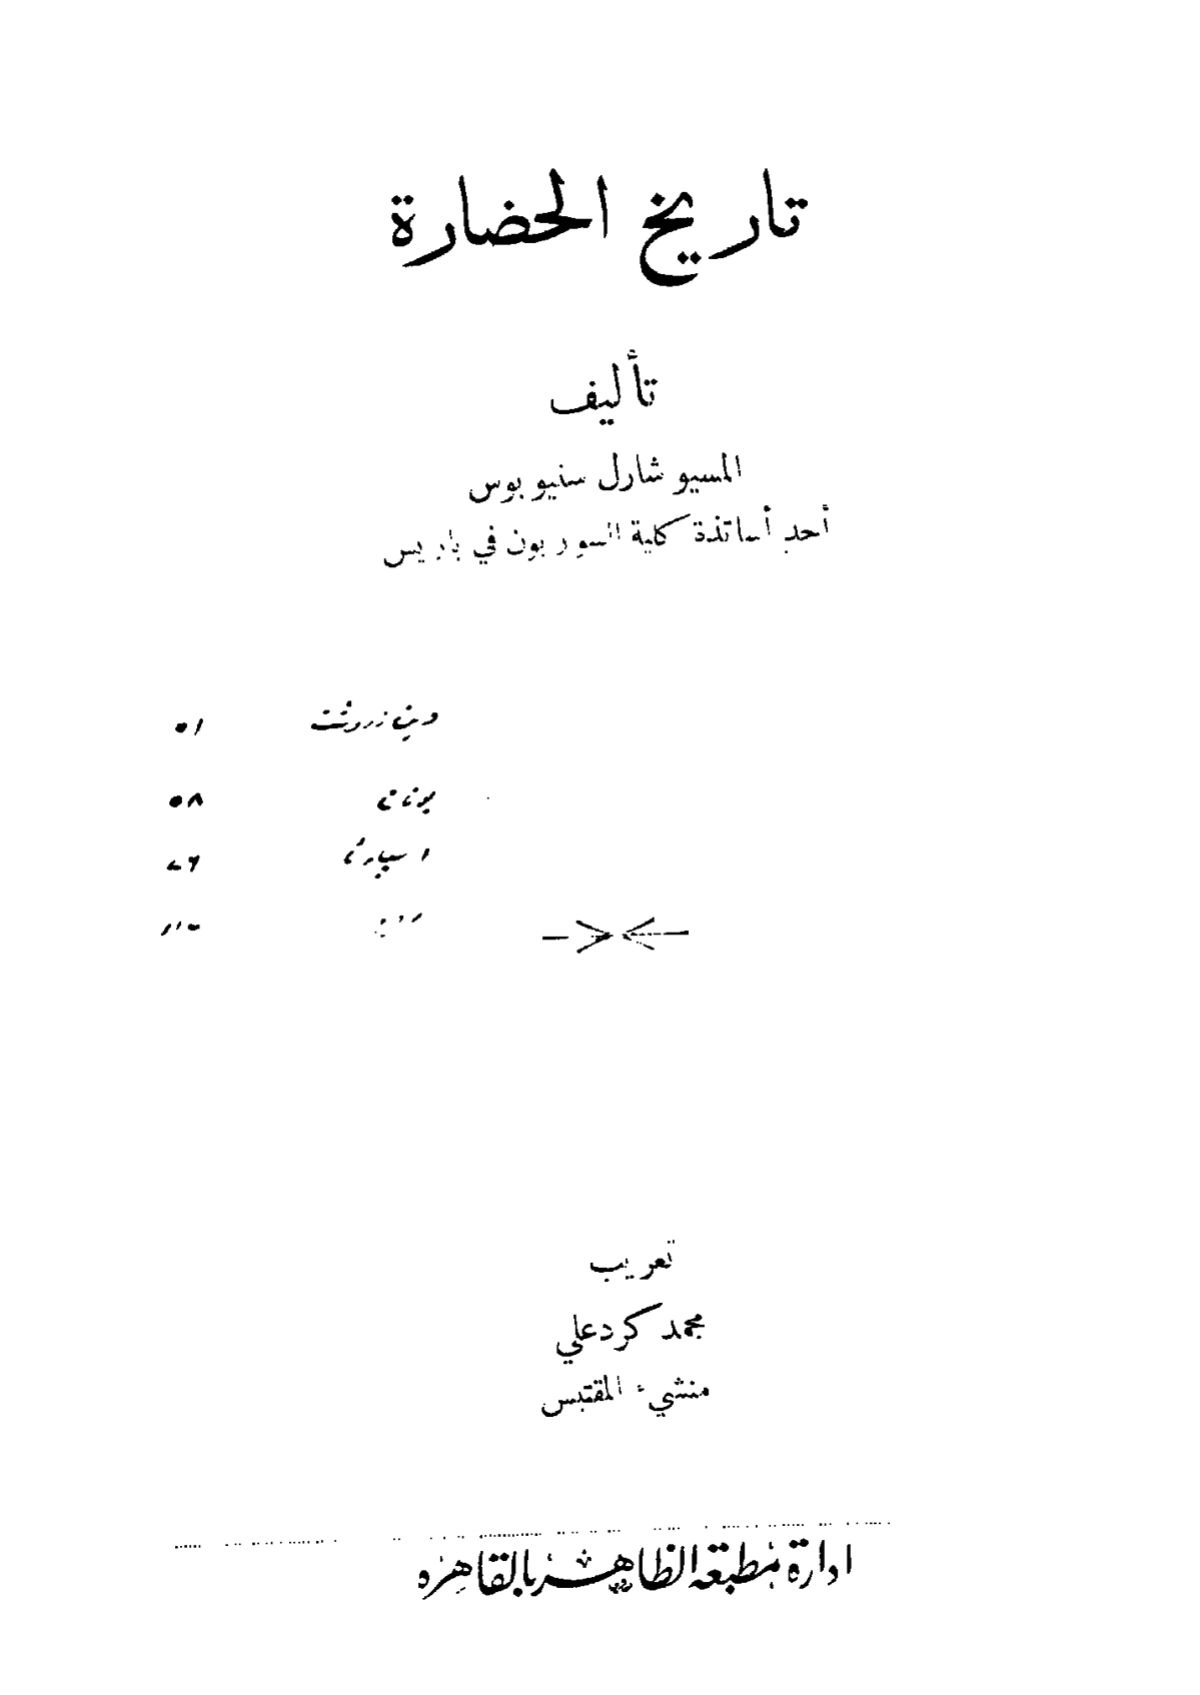 تاريخ الحضارة
تأليف
المسيو شارل سنيوبوس
أحد أساتذة كلية السوربون في باريس
دين زردشت ٥١
يونان ٥٨
اسپارتا
تعريب
محمد كرد علي
منشيء المقتبس
ادارة مطبعة الظاهر بالقاهرة